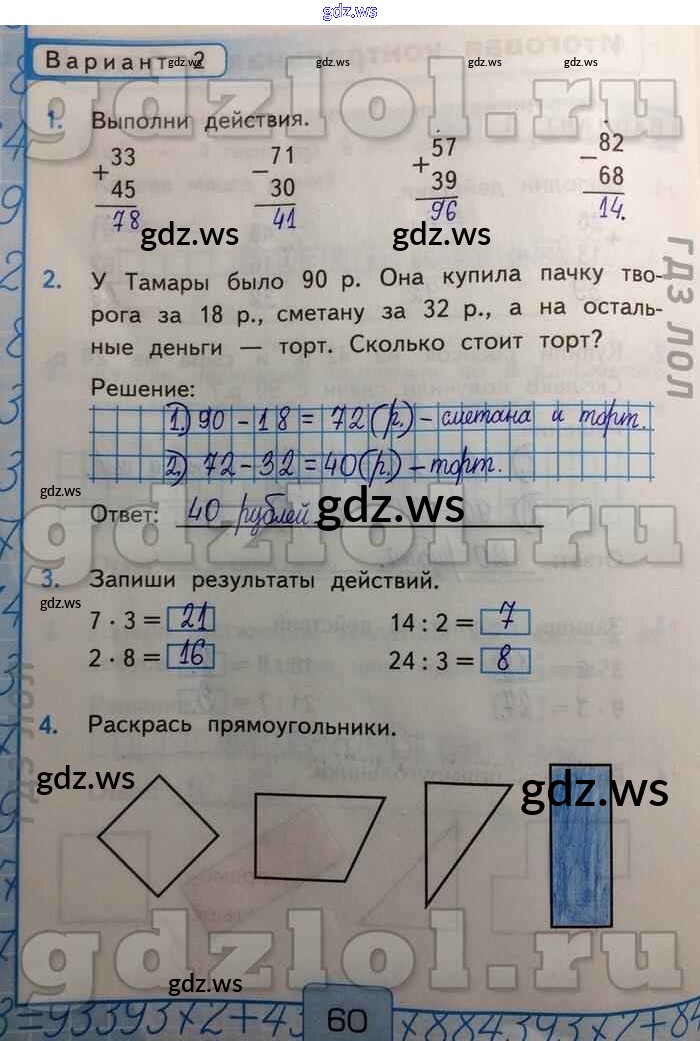 gdz.ws
Вариант 2
gdz.ws gdz.ws gdz.ws gdz.ws
gdzlol.ru
1. Выполни действия.
+ 33 − 71 + 57 − 82
45 30 39 68
78 41 96 14.
gdz.ws gdz.ws
2. У Тамары было 90 р. Она купила пачку тво-
рога за 18 р., сметану за 32 р., а на осталь-
ные деньги — торт. Сколько стоит торт?
гдз лол
Решение:
1.) 90 - 18 = 72 (р.) - сметана и торт.
2.) 72 - 32 = 40 (р.) - торт.
gdz.ws
Ответ: 40 рублей
gdz.ws
gdzlol.ru
3. Запиши результаты действий.
gdz.ws
7 · 3 = 21 14 : 2 = 7
2 · 8 = 16 24 : 3 = 8
гдз лол
4. Раскрась прямоугольники.
gdz.ws gdz.ws
gdzlol.ru
gdz.ws gdz.ws
3=93393×2+43 60 ×884393×7+84